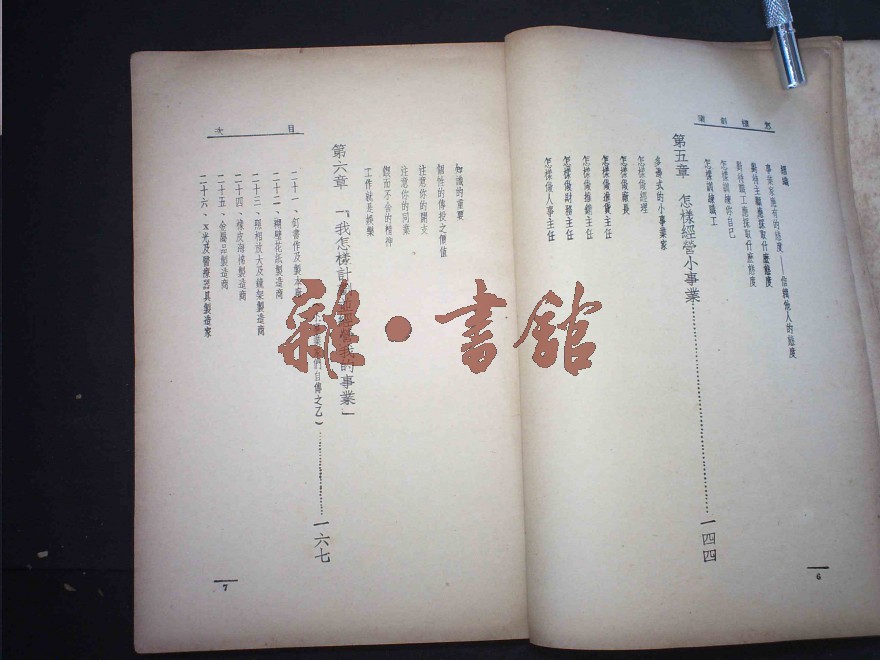 經論
事業家應有的態度——信賴他人的態度
對待主顧應採取什麼態度
對待職工應採取什麼態度
怎樣訓練你自己
怎樣訓練職工
第五章 怎樣經營小事業 一四四
多海式的小事業家
怎樣做經理
怎樣做廠長
怎樣做進貨主任
怎樣做推銷主任
怎樣做財務主任
怎樣做人事主任
6
目次
知識的重要
個性的傳授之價值
注意你的開支
注意你的同業
鍥而不舍的精神
工作就是娛樂
第六章 「我怎樣計劃並經營我的事業」
們自傳之乙) 一六七
二十一、釘書作及製本商
二十二、糊壁花紙製造商
二十三、照相放大及鏡架製造商
二十四、橡皮海棉製造商
二十五、金屬品製造商
二十六、X光及醫療器具製造家
7
雜·書館